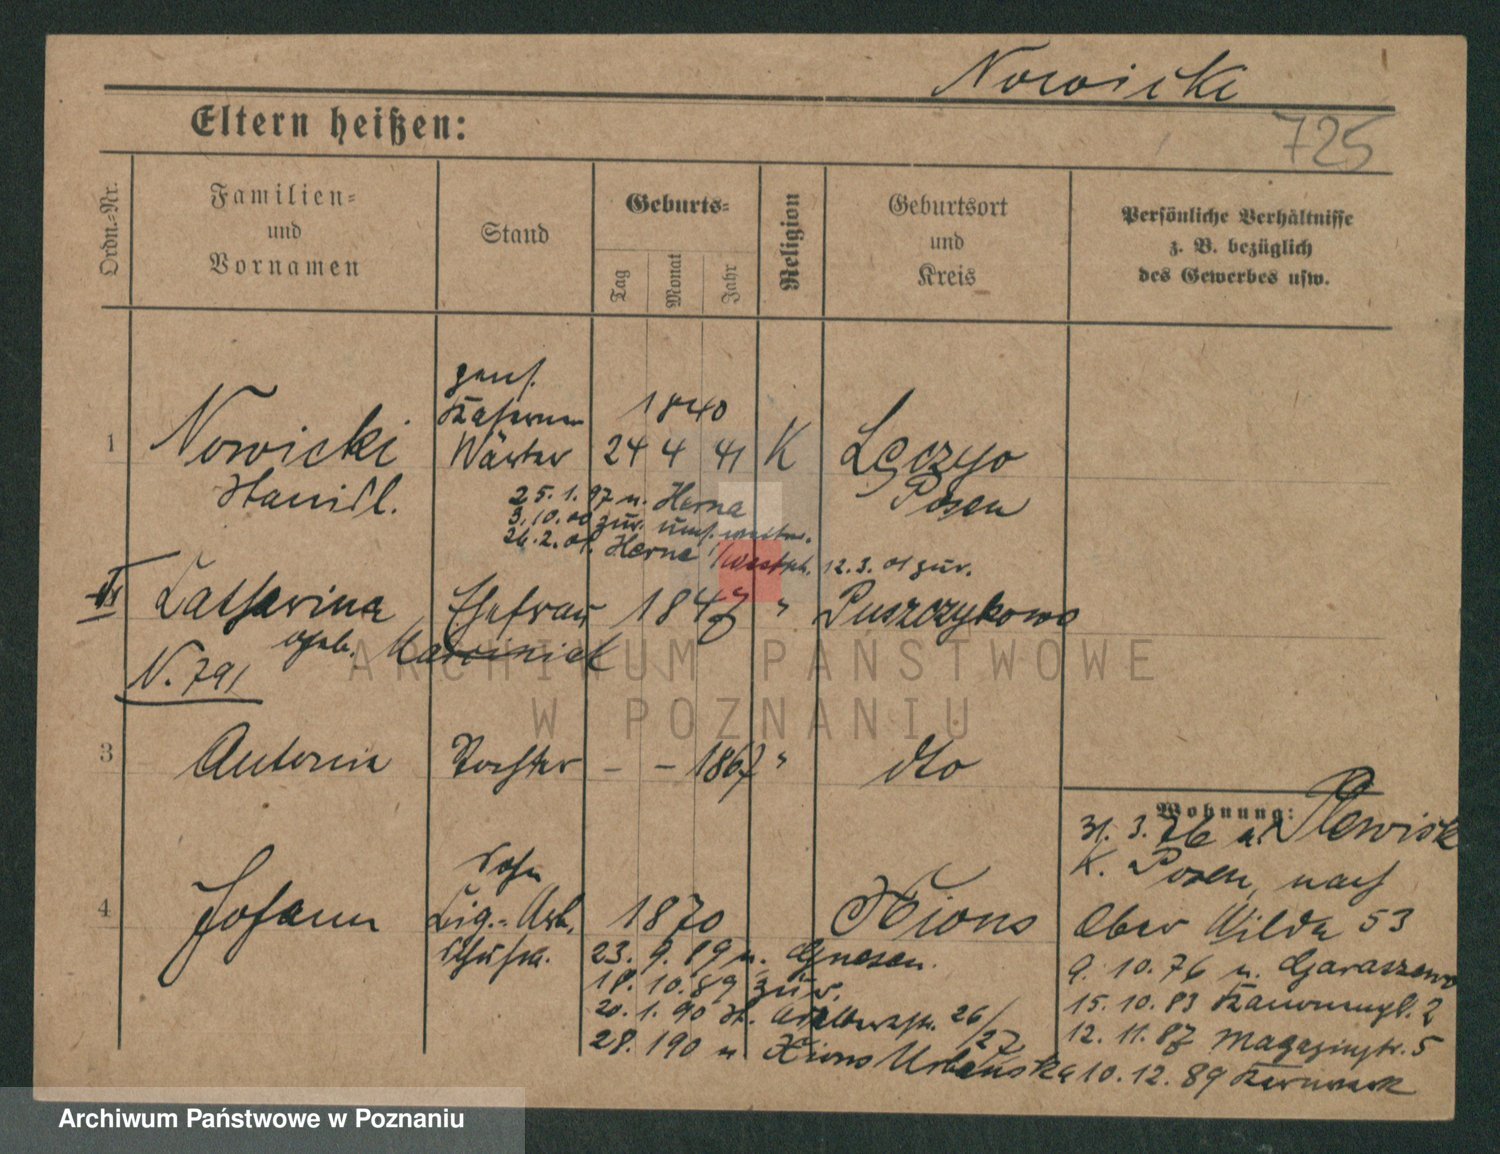 Nowicki
725
Eltern heißen:
Ordn.-Nr.
Familien-
und
Vornamen
Stand
Geburts-
Tag
Monat
Jahr
Religion
Geburtsort
und
Kreis
Persönliche Verhältnisse
z. B. bezüglich
des Gewerbes usw.
1 Nowicki
Stanisl.
pens.
Kasernen
Wärter
1840
24 4 41 K
Lęczyo
Posen
25. 1. 97 n. Herne
3. 10. 00 zur.
26. 2. 01. Herne /Westph. 12. 3. 01 zur.
II Catharina Ehefrau 1847 " Puszczykowo
geb. Marciniak
N. 791
3 Antonie Tochter – – 1867 " dto
4 Johann
Sohn
Cig.-Arb.
1870 Xions
23. 9. 89 n. Gnesen.
18. 10. 89 zur.
20. 1. 90 St. Adalbertstr. 26/27
28. 1 90 n Xions Urbańska
Wohnung:
31. 3. 76 a. Plewisk
K. Posen, nach
Ober Wilda 53
9. 10. 76 n. Garaszewo
15. 10. 83 2
12. 11. 87 Magazinstr. 5
10. 12. 89 Kernwerk
ARCHIWUM PAŃSTWOWE
W POZNANIU
Archiwum Państwowe w Poznaniu